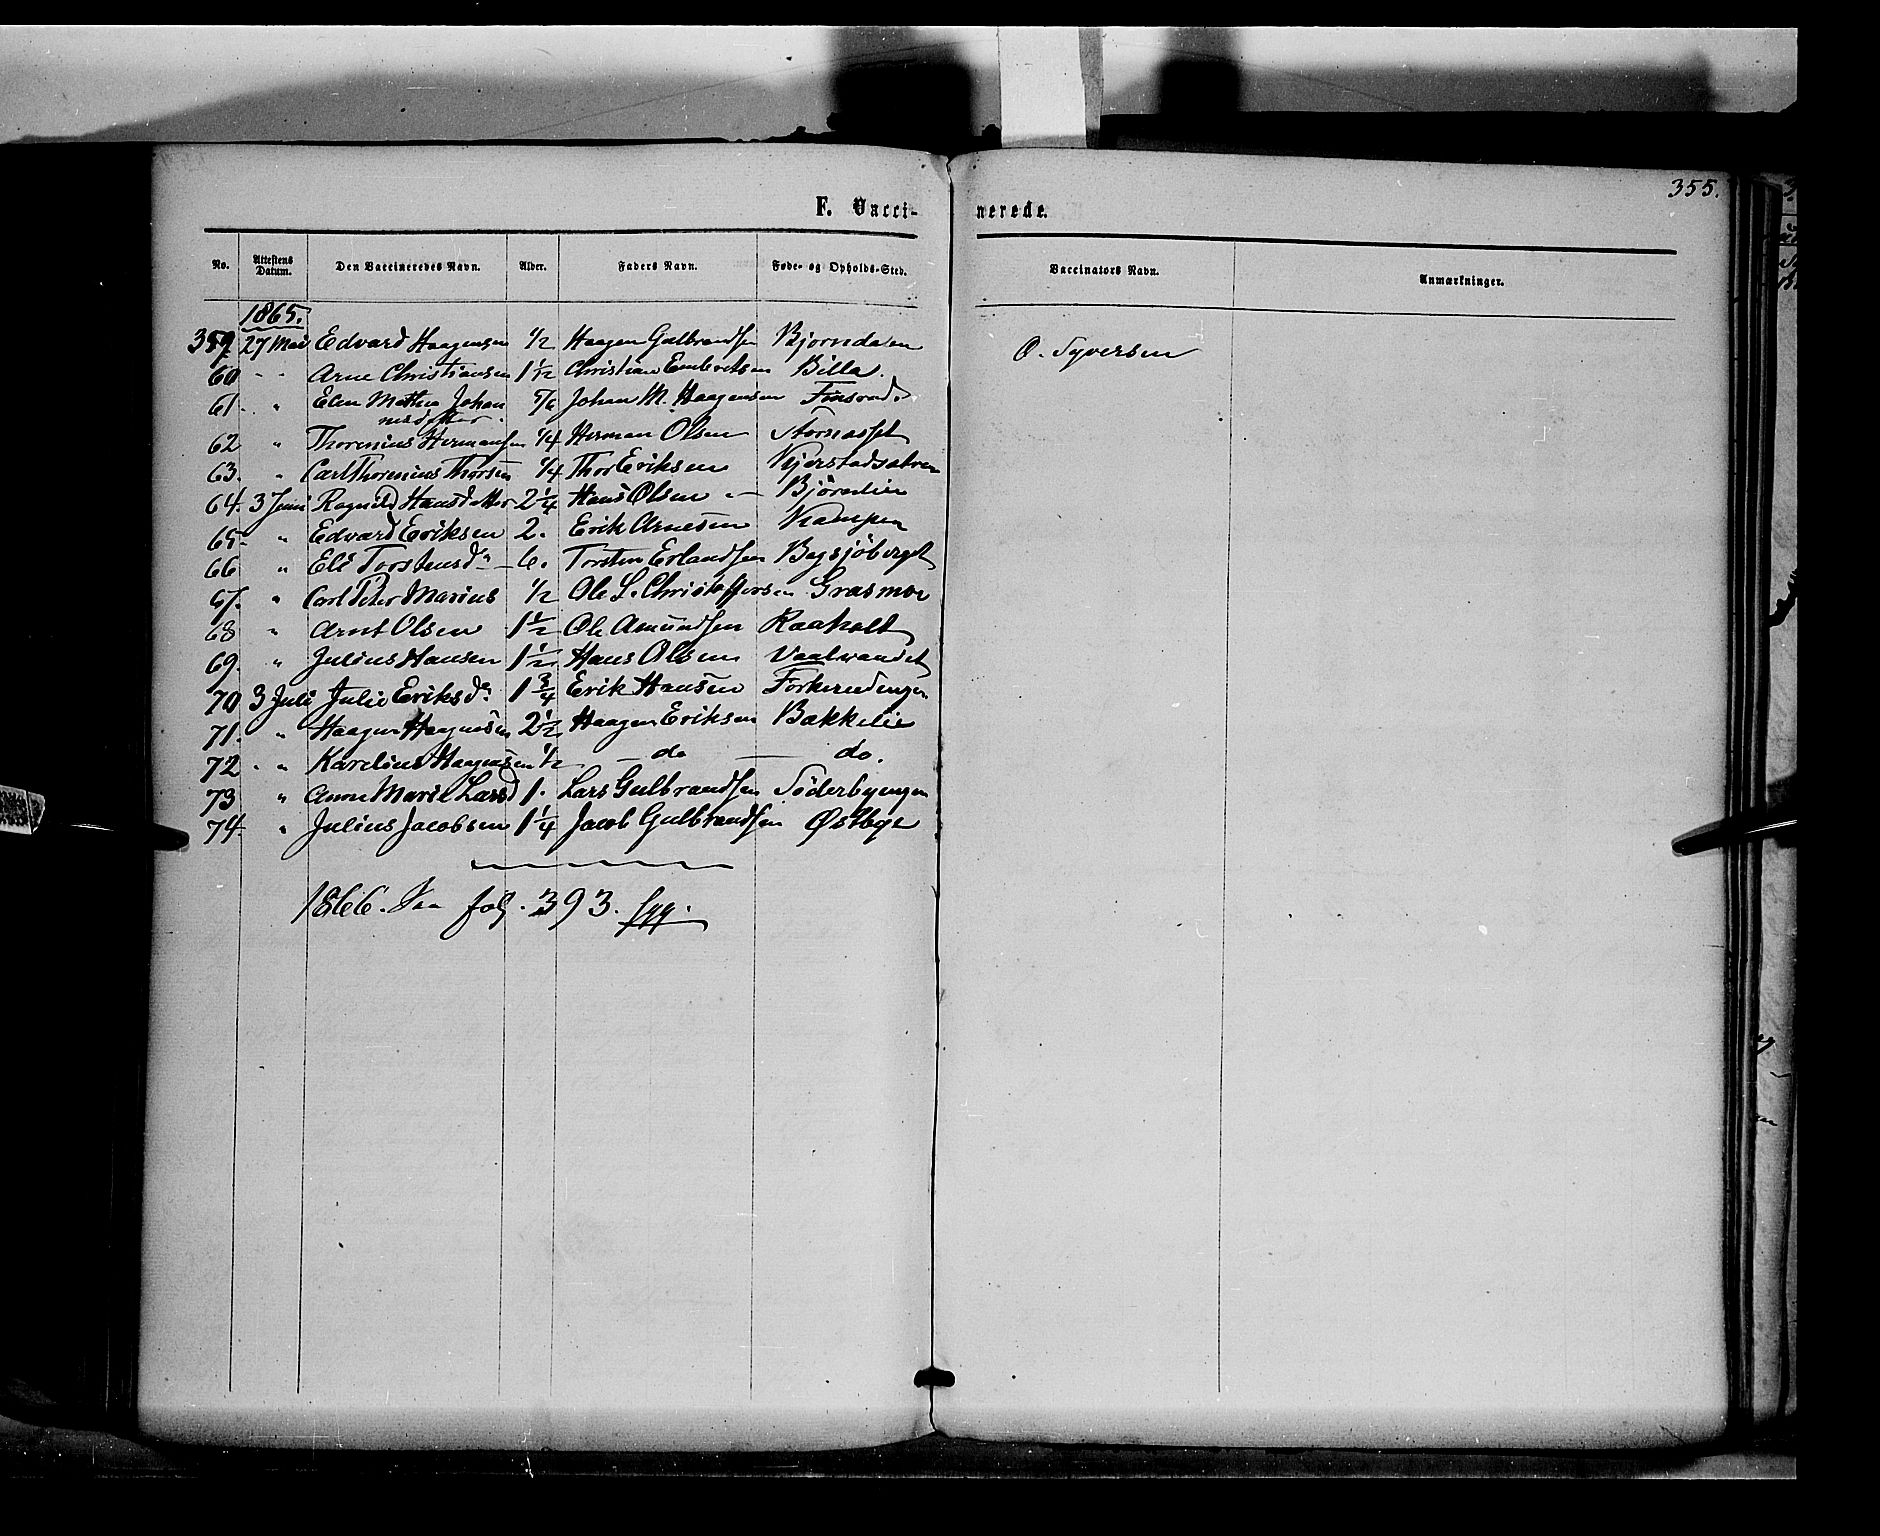 355.
F. Vacci- nerede.
No. Attestens Datum. Den Vaccineredes Navn. Alder. Faders Navn. Føde- og Opholds-Sted. Vaccinators Navn. Anmærkninger.
1865.
359. 27 Mai Edvard Haagensen 1/2 Haagen Gulbrandsen Bjorndalen O. Syversen
60 " " Arne Christiansen 1 1/12 Christian Embretsen Billa.
61. " Elen Mathea Johan 5/6 Johan M. Haagensen
nesdatter.
62 " Thorenius Hermansen 1/4 Herman Olsen
63. " Carl Thorenius Thorsen 1/4 Thor Eriksen Kjerstadsætren
64. 3 Juni Ragnild Hansdatter 2 1/4 Hans Olsen Björnlien
65. " Edvard Eriksen 2. Erik Arnesen Krampen
66 " Eli Torstensdr 6. Torsten Erlandsen Bagsjöberget
67. " Carl Peter Marius 1/2 Ole L. Christoffersen Græsmoe
68 " Arnt Olsen 1 1/2 Ole Amundsen Raaholt
69. " Julius Hansen 1 1/2 Hans Olsen Vaalvandet
70 3 Juli Julie Eriksdr 1 3/4 Erik Hansen
71. " Haagen Haagensen 2 1/2 Haagen Eriksen Bakkelie
72. " Karelius Haagensen 1/2 — do — do.
73 " Anne Marie Larsd 1. Lars Gulbrandsen Söderbyengen
74. " Julius Jacobsen 1 1/4 Jacob Gulbrandsen Østbye
1866. See fol. 393. fgg.